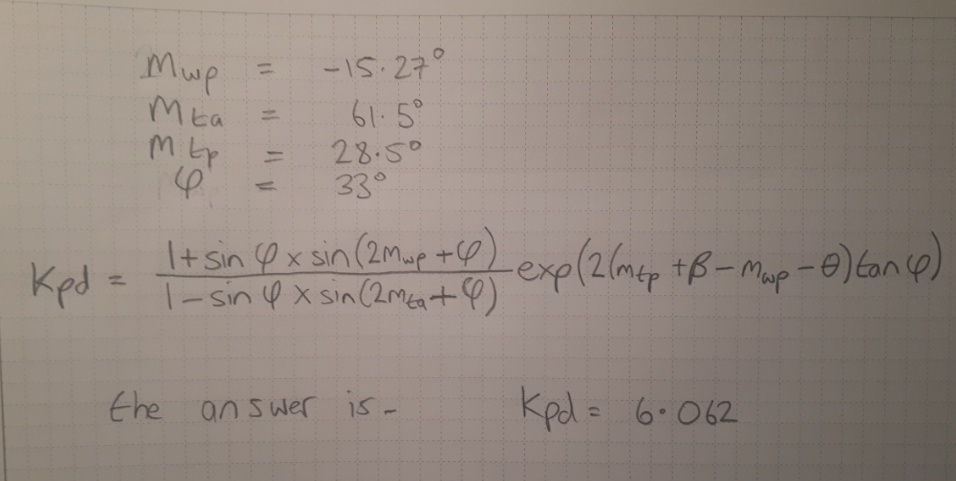 Mwp = -15.27°
Mta = 61.5°
mtp = 28.5°
φ = 33°
Kpd = (1 + sin φ × sin(2mwp + φ))/(1 - sin φ × sin(2mta + φ)) exp(2(mtp + β - mwp - θ) tan φ)
the answer is - Kpd = 6.062